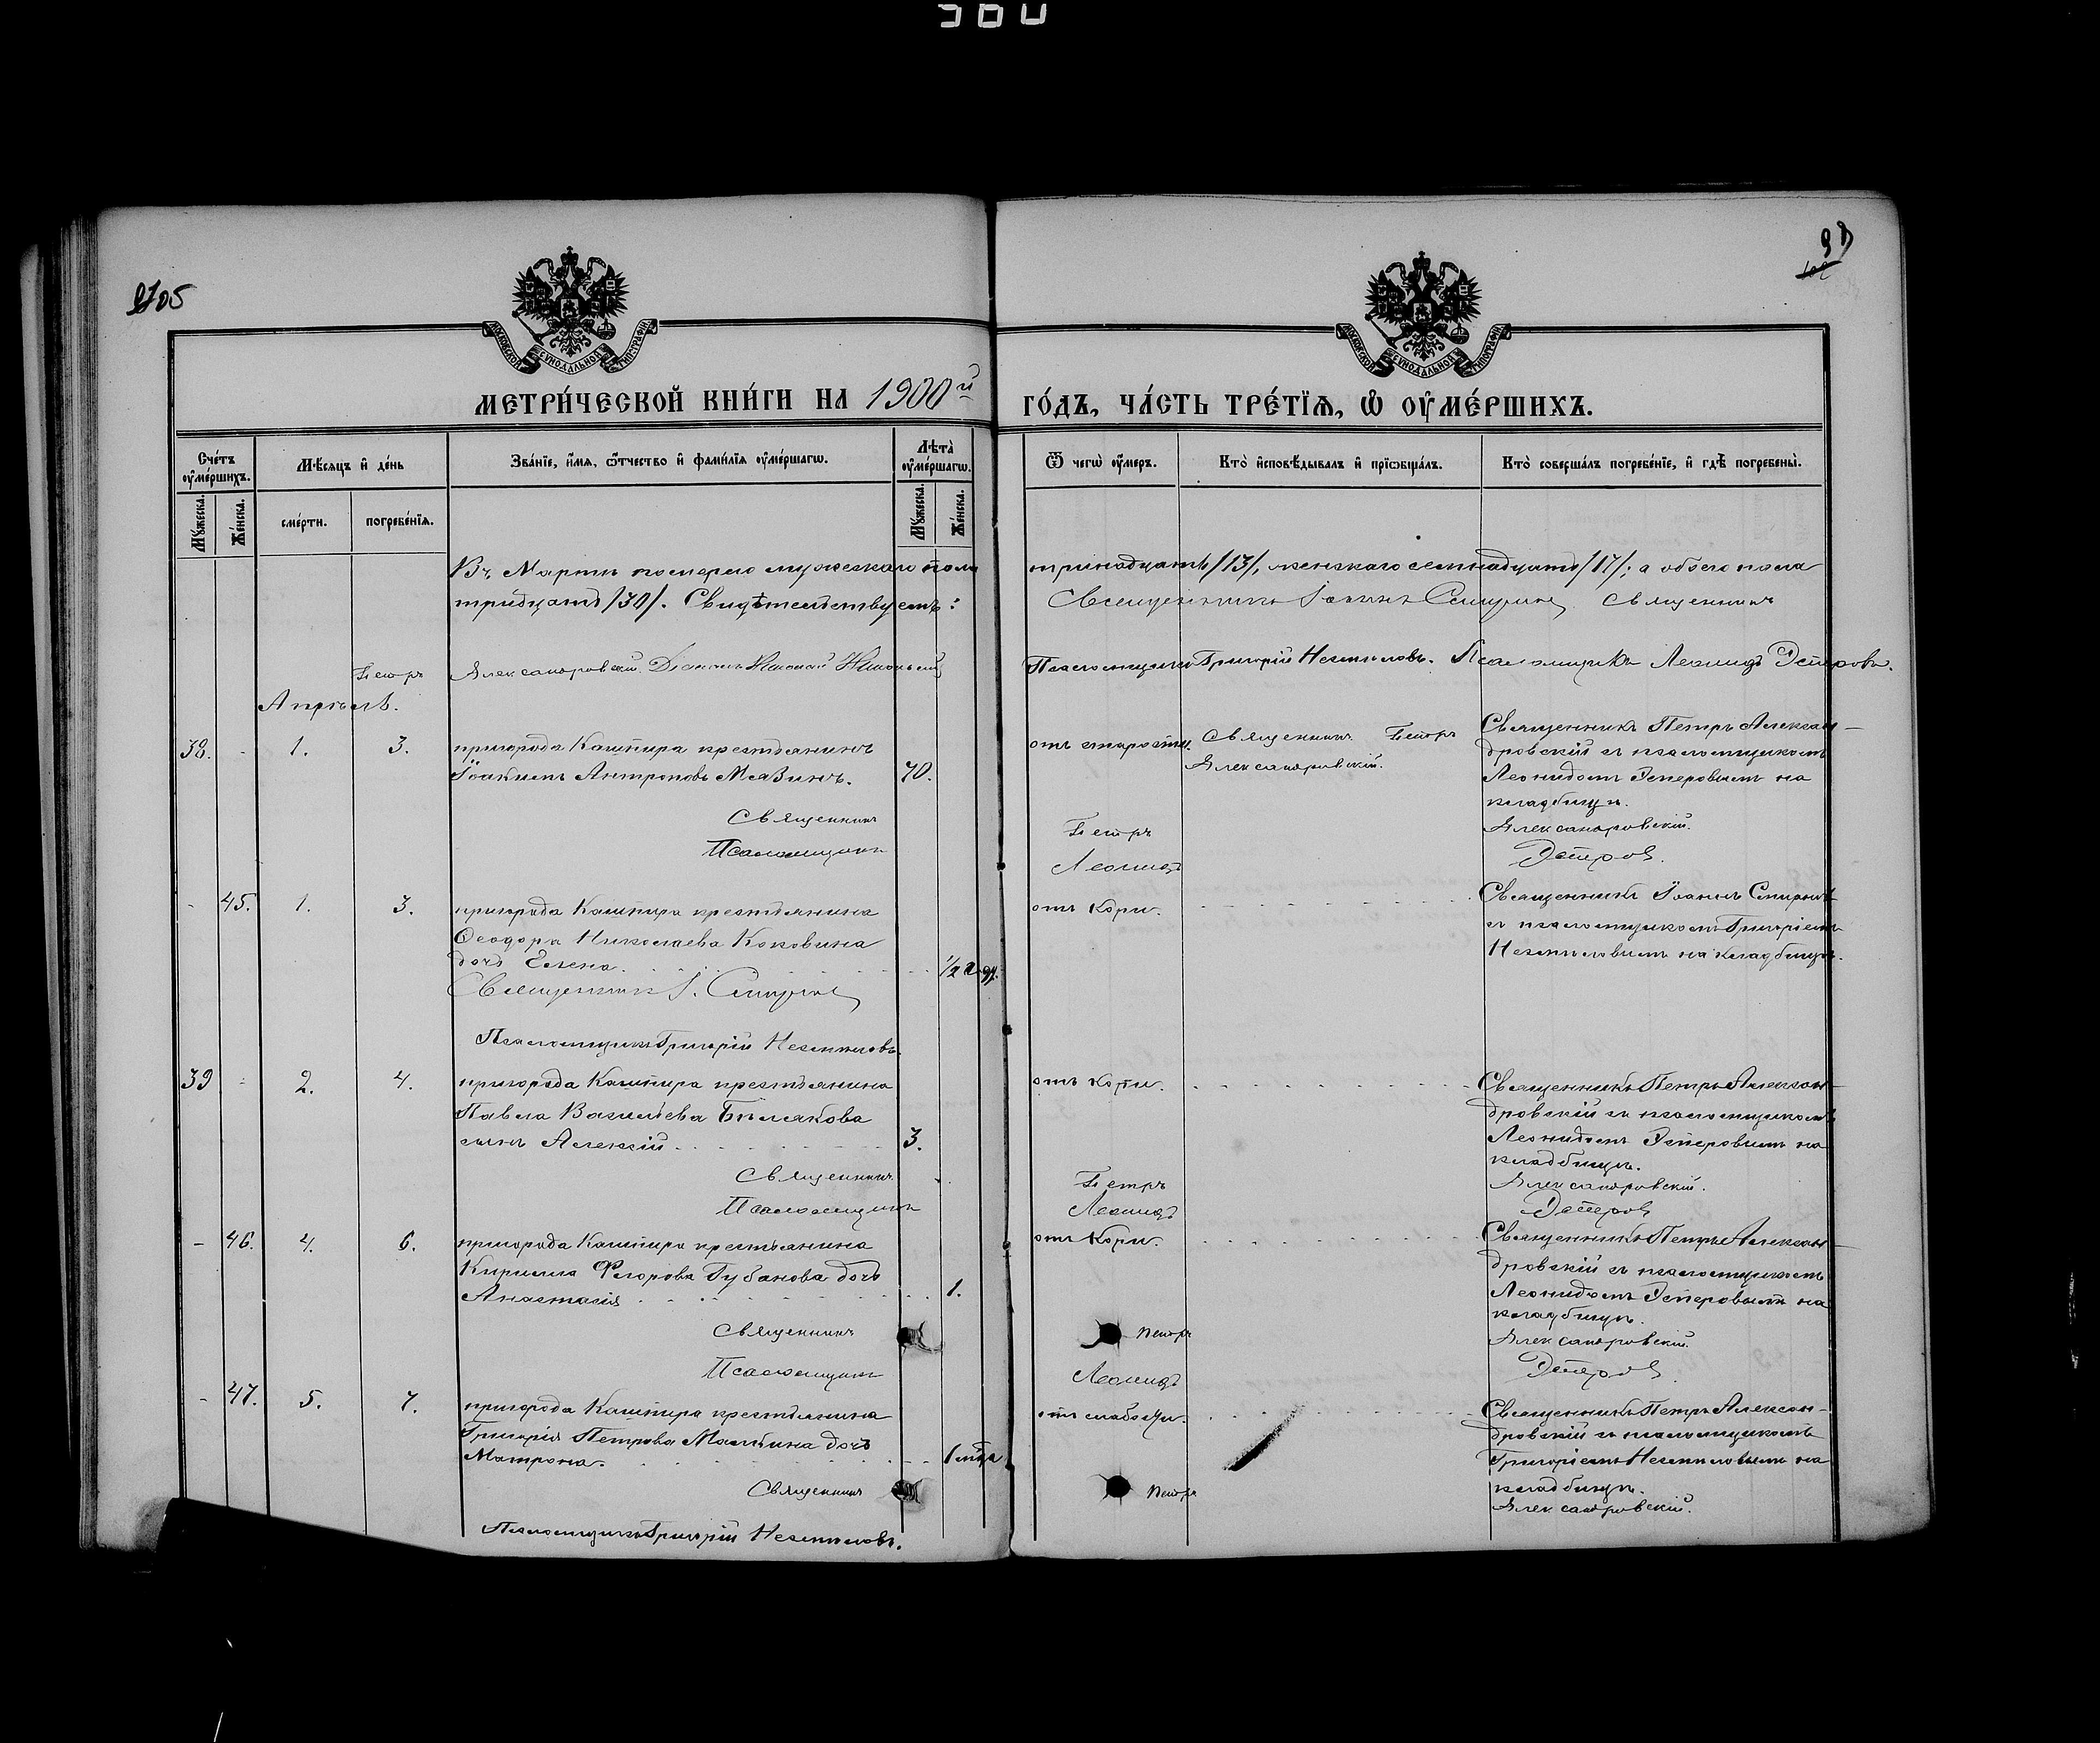 380
98
102
МОСКОВСКОЙ СѴНОДАЛЬНОЙ ТИПОГРАФІИ
МОСКОВСКОЙ СѴНОДАЛЬНОЙ ТИПОГРАФІИ
МЕТРИ́ЧЕСКОЙ КНИ́ГИ НА 1900й ГО́ДЪ, ЧА́СТЬ ТРЕ́ТІѦ, Ѡ ОУМЕ́РШИХЪ.
Сче́тъ оумершихъ.
Мꙋжеска.
Же́нска.
Мѣсяцъ и де́нь
сме́рти.
погребе́нїѧ.
Зва́нїе, и҆́мѧ, ѻ҆́тчество и҆ фами́лїѧ оумершагѡ.
Лѣта̀ оумершагѡ.
Мꙋжеска.
Же́нска.
Ѿ чегѡ̀ оумеръ.
Кто̀ и҆сповѣдывалъ и҆ прїѡбща́лъ.
Кто̀ соверша́лъ погребе́нїе, и҆ гдѣ̀ погребены̀.
Въ Мартѣ померло мужескаго пола тринадцать /13/, женскаго семнадцать /17/; а обоего пола
тридцать /30/. Свидѣтельствуемъ: Священникъ Іоаннъ Смирнов Священникъ
Петръ Александровскій. Діаконъ Николай Псаломщикъ Григорій Несмѣловъ. Псаломщикъ Леонидъ Эсперовъ.
Апрѣль.
38. - 1. 3. пригорода Кашпира крестьянинъ
Іоакимъ Антроповъ Мязинъ. 70.
отъ старости. Священникъ Петръ
Александровскій.
Священникъ Петръ Алексан-
дровскій съ псаломщикомъ
Леонидомъ Эсперовымъ на
кладбищѣ.
Священникъ Петръ Александровскій.
Псаломщикъ Леонидъ Эсперов.
- 45. 1. 3. пригорода Кашпира крестьянина
Ѳеодора Николаева Коковина
дочь Елена. 1/2 года.
отъ кори.
Священникъ Іоаннъ Смирновъ
съ псаломщикомъ Григоріемъ
Несмѣловымъ на кладбищѣ.
Священникъ І. Смирнов
Псаломщикъ Григорій Несмѣловъ.
39 - 2. 4. пригорода Кашпира крестьянина
Павла Васильева Бѣлякова
сынъ Алексій 3.
отъ кори.
Священникъ Петръ Алексан-
дровскій съ псаломщикомъ
Леонидомъ Эсперовымъ на
кладбищѣ.
Священникъ Петръ Александровскій.
Псаломщикъ Леонидъ Эсперов
- 46. 4. 6. пригорода Кашпира крестьянина
Кирилла Флорова Губанова дочь
Анастасія 1.
отъ кори.
Священникъ Петръ Алексан-
дровскій съ псаломщикомъ
Леонидомъ Эсперовымъ на
кладбищѣ.
Священникъ Петръ Александровскій.
Псаломщикъ Леонидъ Эсперов.
- 47. 5. 7. пригорода Кашпира крестьянина
Григорія Петрова Малкина дочь
Матрона. 1 мѣца
отъ слабости.
Священникъ Петръ Алексан-
дровскій съ псаломщикомъ
Григоріемъ Несмѣловымъ на
кладбищѣ.
Священникъ Петръ Александровскій.
Псаломщикъ Григорій Несмѣловъ.